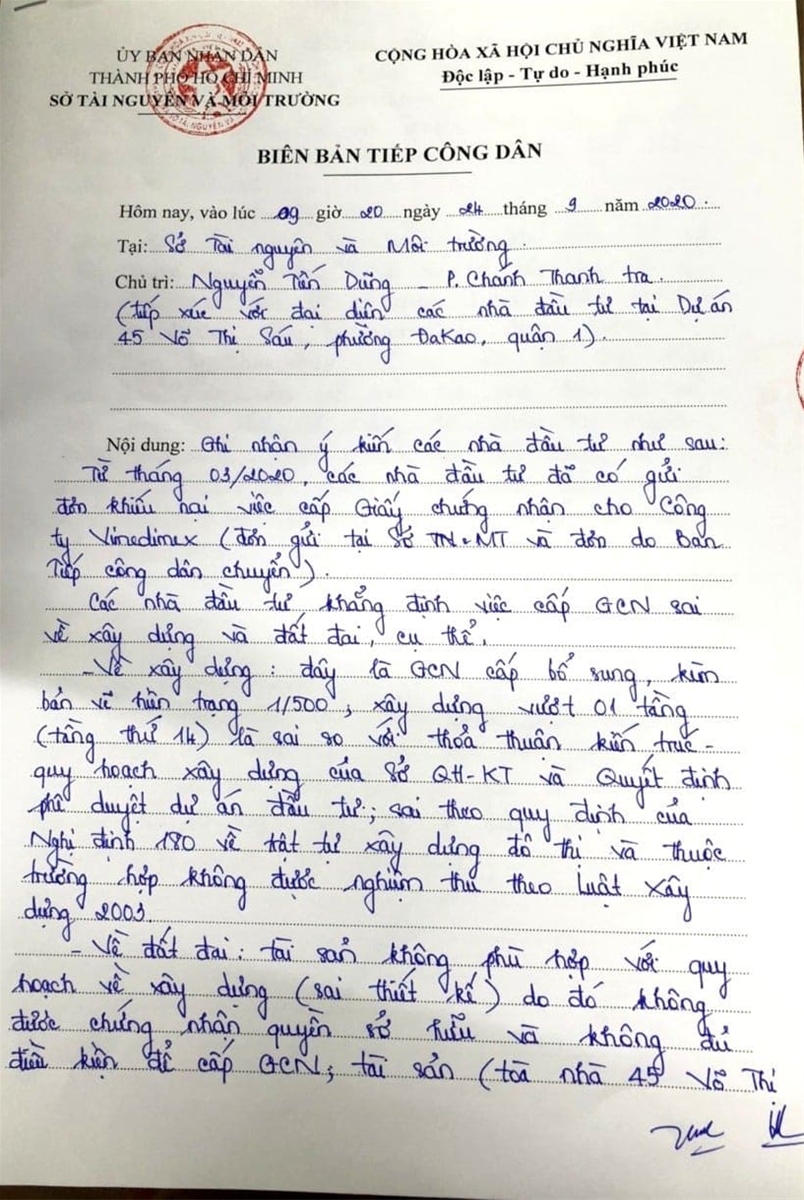 ỦY BAN NHÂN DÂN
THÀNH PHỐ HỒ CHÍ MINH
SỞ TÀI NGUYÊN VÀ MÔI TRƯỜNG
CỘNG HÒA XÃ HỘI CHỦ NGHĨA VIỆT NAM
Độc lập - Tự do - Hạnh phúc
BIÊN BẢN TIẾP CÔNG DÂN
Hôm nay, vào lúc 09 giờ 20 ngày 24 tháng 9 năm 2020.
Tại: Sở Tài nguyên và Môi trường.
Chủ trì: Nguyễn Tiến Dũng - P. Chánh Thanh tra.
(tiếp xúc với đại diện các nhà đầu tư tại Dự án
45 Võ Thị Sáu, phường ĐaKao, quận 1).
Nội dung: Ghi nhận ý kiến các nhà đầu tư như sau:
Từ tháng 03/2020, các nhà đầu tư đã có gửi
đơn khiếu nại việc cấp Giấy chứng nhận cho Công
ty Vimedimex (đơn gửi tại Sở TN&MT và đơn do Ban
Tiếp công dân chuyển).
Các nhà đầu tư khẳng định việc cấp GCN sai
về xây dựng và đất đai, cụ thể.
- Về xây dựng: đây là GCN cấp bổ sung, kèm
bản vẽ hiện trạng 1/500, xây dựng vượt 01 tầng
(tầng thứ 14) là sai so với thỏa thuận kiến trúc -
quy hoạch xây dựng của Sở QH-KT và Quyết định
phê duyệt dự án đầu tư; sai theo quy định của
Nghị định 180 về trật tự xây dựng đô thị và thuộc
trường hợp không được nghiệm thu theo Luật Xây
dựng 2003.
- Về đất đai: tài sản không phù hợp với quy
hoạch về xây dựng (sai thiết kế) do đó không
được chứng nhận quyền sở hữu và không đủ
điều kiện để cấp GCN; tài sản (tòa nhà 45 Võ Thị